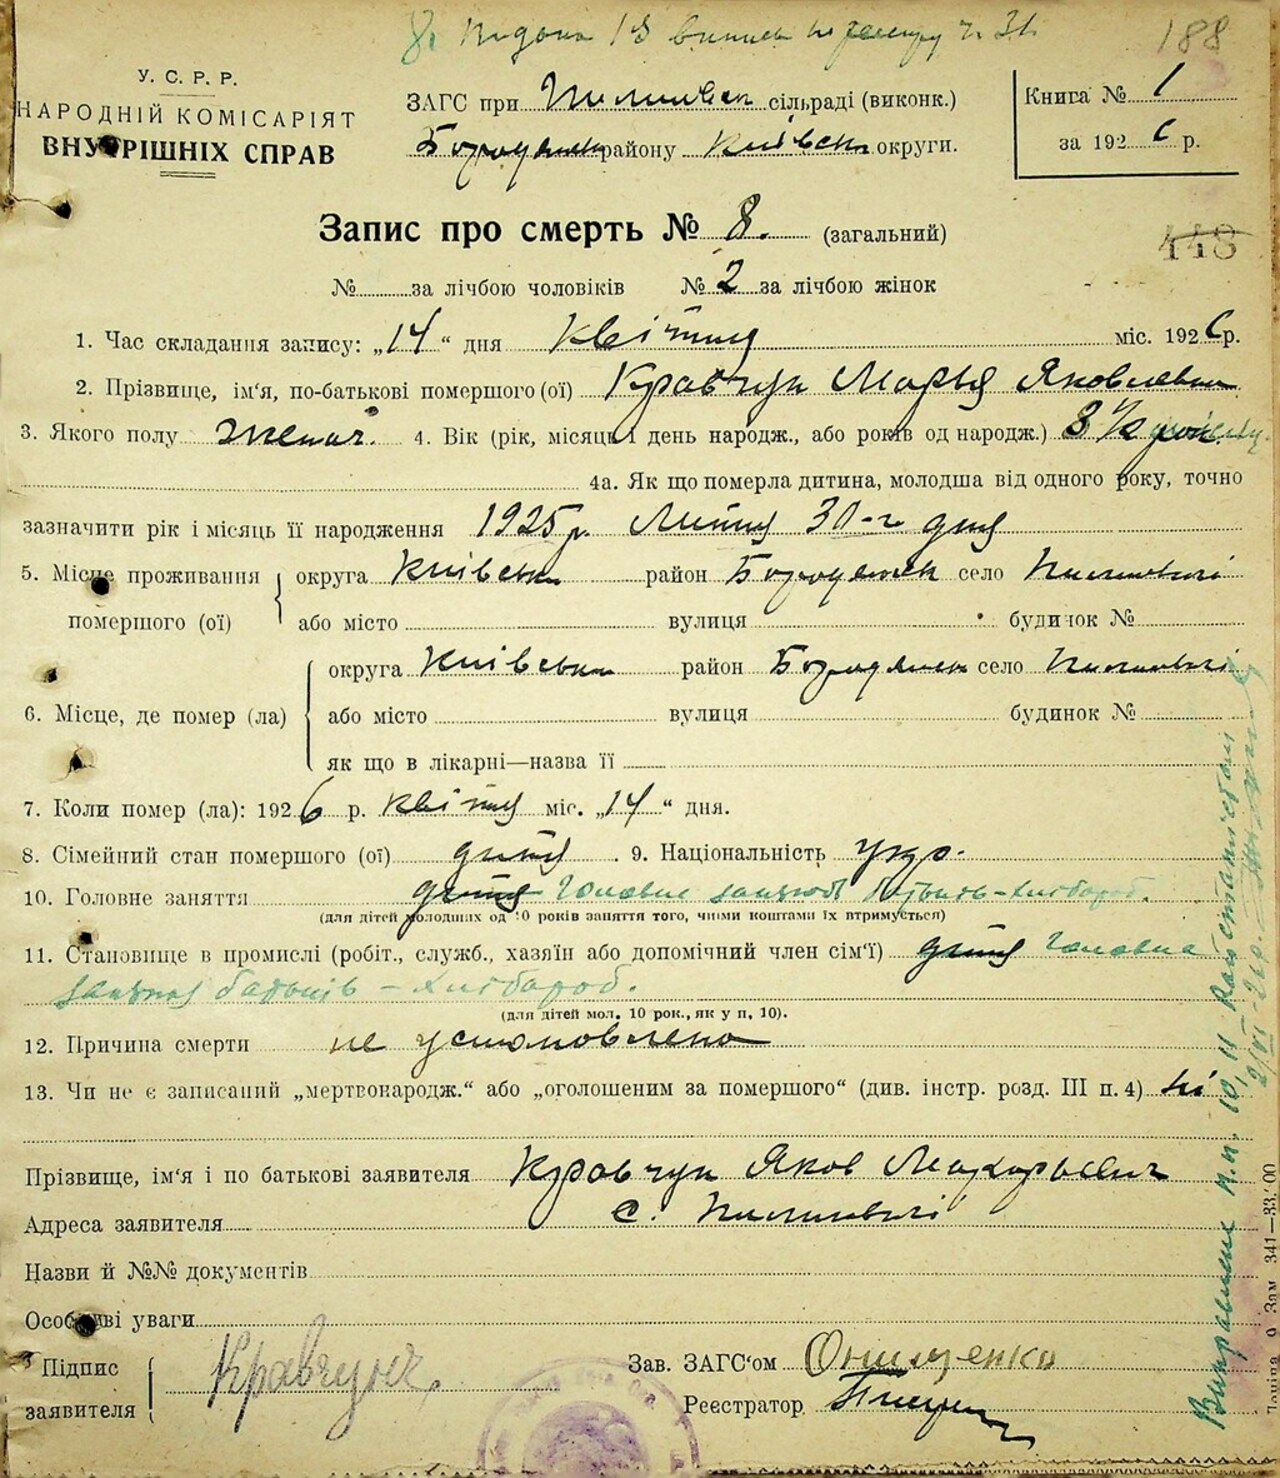 188
У. С. Р. Р.
НАРОДНІЙ КОМІСАРІЯТ
ВНУТРІШНІХ СПРАВ
ЗАГС при сільраді (виконк.)
Бородянськ району Київськ округи.
Книга № 1
за 1926 р.
Запис про смерть № 8. (загальний)
448
№ за лічбою чоловіків № 2 за лічбою жінок
1. Час складання запису: „14“ дня квітня міс. 1926 р.
2. Прізвище, ім‘я, по-батькові помершого (ої) Кравчук Марья Яковлевна
3. Якого полу женск. 4. Вік (рік, місяць і день народж., або років од народж.) 8 1/2
4а. Як що померла дитина, молодша від одного року, точно
зазначити рік і місяць її народження 1925 р. Липня 30-го дня
5. Місце проживання помершого (ої) округа Київська район Бородянськ село
або місто вулиця будинок №
6. Місце, де помер (ла) округа Київська район Бородянськ село
або місто вулиця будинок №
як що в лікарні—назва її
7. Коли помер (ла): 1926 р. квітня міс. „14“ дня.
8. Сімейний стан помершого (ої) дитя 9. Національність укр.
10. Головне заняття дитя Головне батьків-хлібороб.
(для дітей молодших од 10 років заняття того, чиїми коштами їх втримується)
11. Становище в промислі (робіт., служб., хазяїн або допомічний член сім‘ї) дитя
батьків – хлібороб.
(для дітей мол. 10 рок., як у п. 10).
12. Причина смерти не установлено
13. Чи не є записаний „мертвонародж.“ або „оголошеним за помершого“ (див. інстр. розд. III п. 4) ні
Прізвище, ім‘я і по батькові заявителя Кравчук Яков Макарьевич
Адреса заявителя с.
Назви й №№ документів
Особливі уваги
Підпис заявителя Кравчук
Зав. ЗАГС‘ом Онищенко
Реєстратор
10, 11
341—33.‘00